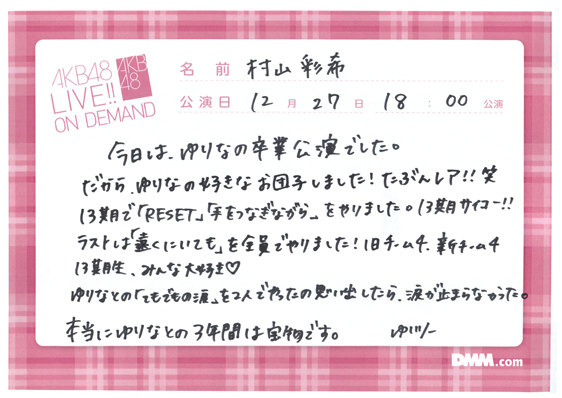 AKB48
LIVE!!
ON DEMAND
AKB
48
名前 村山彩希
公演日 12月27日 18:00公演
今日は、ゆりなの卒業公演でした。
だから、ゆりなの好きなお団子しました!たぶんレア!!笑
13期で「RESET」「手をつなぎながら」をやりました。13期サイコー!!
ラストは「遠くにいても」を全員でやりました!旧チーム4、新チーム4
13期生、みんな大好き♡
ゆりなとの「てもでもの涙」を2人でやったの思い出したら、涙が止まらなかった。
本当にゆりなとの3年間は宝物です。
DMM.com